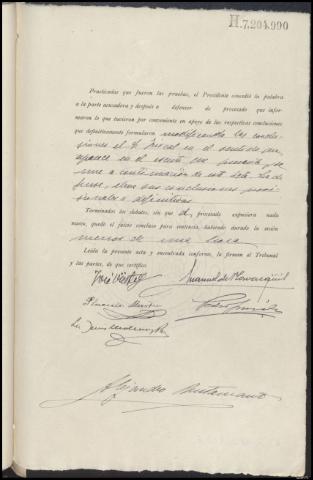 H.7.204.990
Practicadas que fueron las pruebas, el Presidente concedió la palabra
a la parte acusadora y después a defensor de procesado que infor-
maron lo que tuvieron por conveniente en apoyo de las respectivas conclusiones
que definitivamente formularon modificando las conclu-
siones el S. Fiscal en el sentido que
aparece en el escrito que presentó, se
une a continuación de este acta. La de-
fensa, eleva sus conclusiones provi-
sionales a definitivas
Terminados los debates, sin que el procesado expusiera nada
nuevo, quedó el juicio concluso para sentencia, habiendo durado la sesión
menos de una hora
Leída la presente acta y encontrada conforme, la firman el Tribunal
y las partes, de que certifico.
José
Manuel de
Alejandro Bustamante